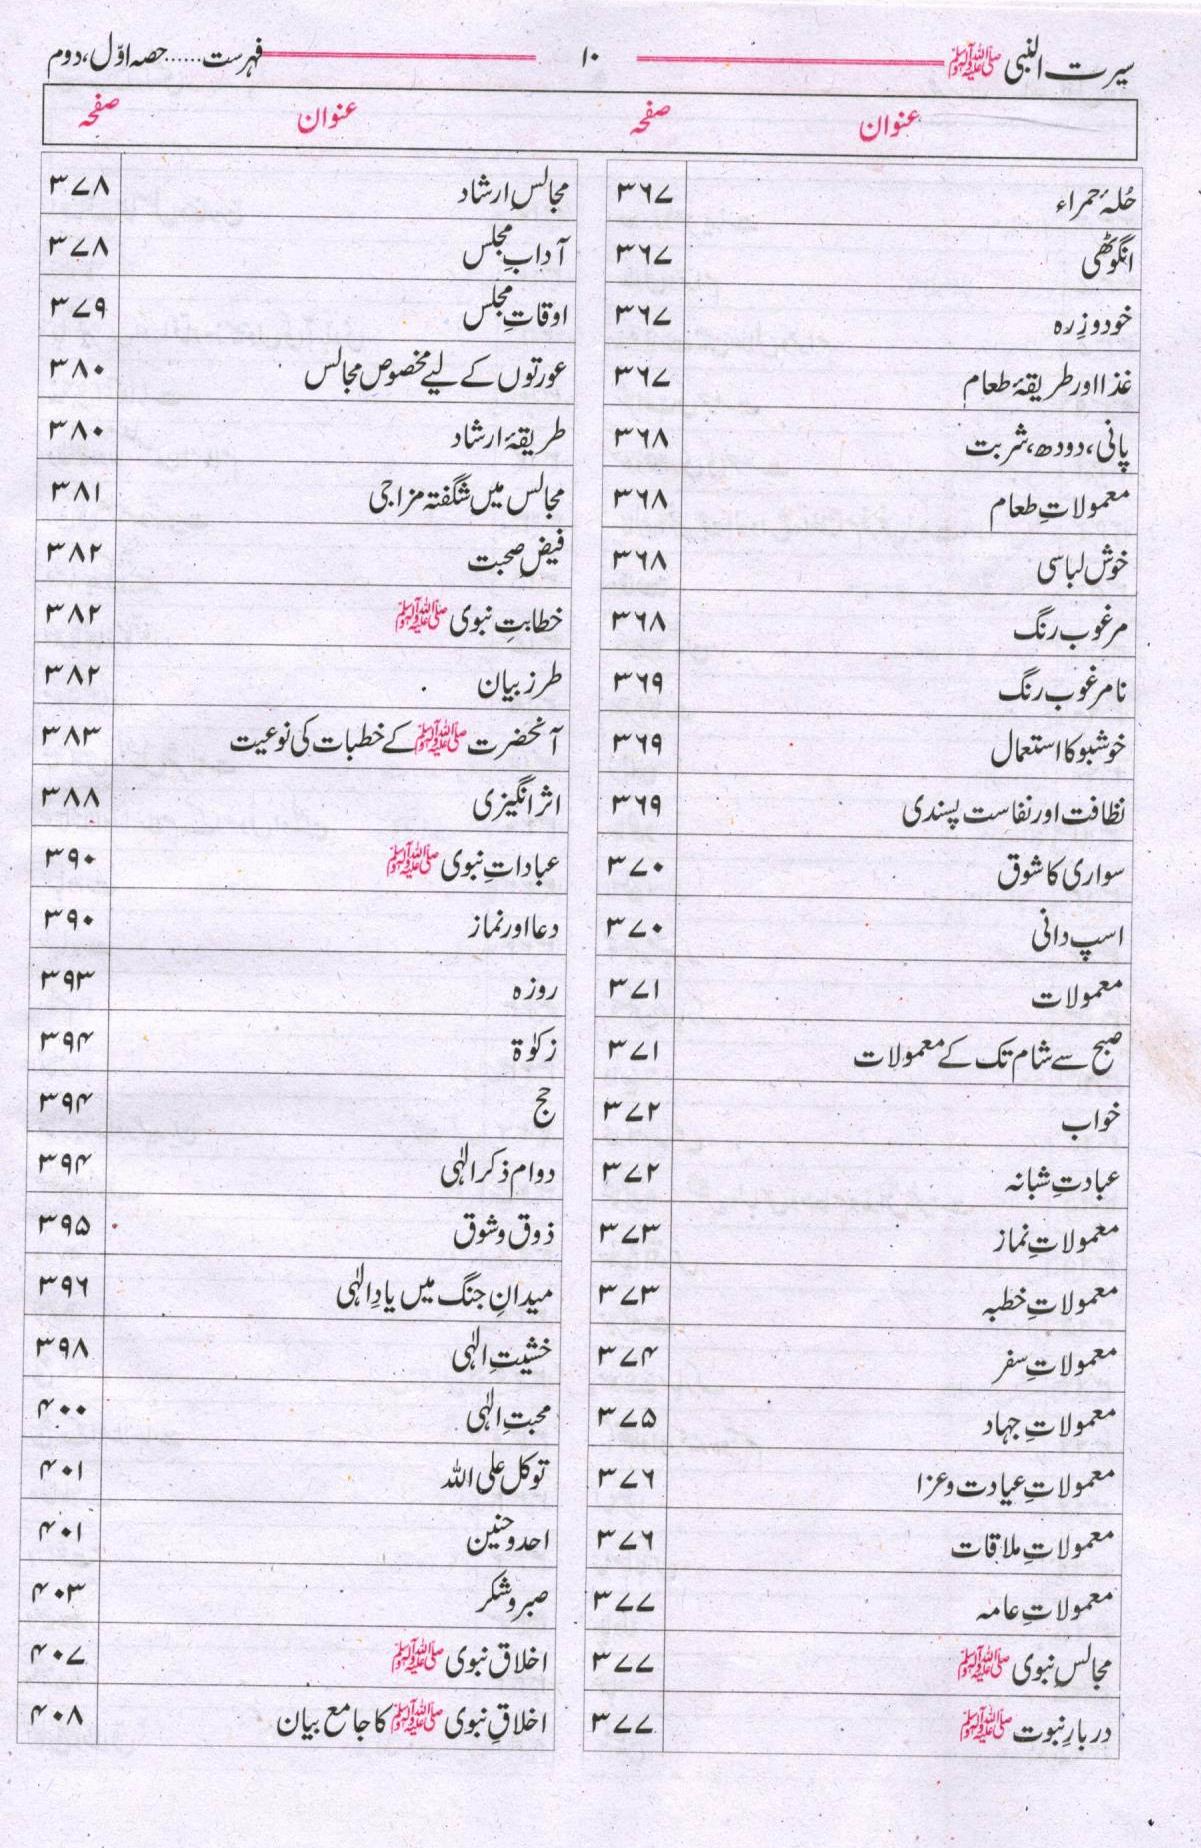 سیرت النبی ﷺ ۱۰ فہرست......حصہ اوّل،دوم
عنوان صفحہ عنوان صفحہ
حُلۂ حمراء ۳۶۷
انگوٹھی ۳۶۷
خود و زِرہ ۳۶۷
غذا اور طریقۂ طعام ۳۶۷
پانی، دودھ، شربت ۳۶۸
معمولاتِ طعام ۳۶۸
خوش لباسی ۳۶۸
مرغوب رنگ ۳۶۸
نامرغوب رنگ ۳۶۹
خوشبو کا استعمال ۳۶۹
نظافت اور نفاست پسندی ۳۶۹
سواری کا شوق ۳۷۰
اسپ دانی ۳۷۰
معمولات ۳۷۱
صبح سے شام تک کے معمولات ۳۷۱
خواب ۳۷۲
عبادتِ شبانہ ۳۷۲
معمولاتِ نماز ۳۷۳
معمولاتِ خطبہ ۳۷۳
معمولاتِ سفر ۳۷۴
معمولاتِ جہاد ۳۷۵
معمولاتِ عیادت و عزا ۳۷۶
معمولاتِ ملاقات ۳۷۶
معمولاتِ عامہ ۳۷۷
مجالسِ نبوی ﷺ ۳۷۷
دربارِ نبوت ﷺ ۳۷۷
مجالسِ ارشاد ۳۷۸
آدابِ مجلس ۳۷۸
اوقاتِ مجلس ۳۷۹
عورتوں کے لیے مخصوص مجالس ۳۸۰
طریقۂ ارشاد ۳۸۰
مجالس میں شگفتہ مزاجی ۳۸۱
فیضِ صحبت ۳۸۲
خطابتِ نبوی ﷺ ۳۸۲
طرز بیان ۳۸۲
آنحضرت ﷺ کے خطبات کی نوعیت ۳۸۳
اثر انگیزی ۳۸۸
عباداتِ نبوی ﷺ ۳۹۰
دعا اور نماز ۳۹۰
روزہ ۳۹۳
زکوٰۃ ۳۹۴
حج ۳۹۴
دوام ذکر الٰہی ۳۹۴
ذوق و شوق ۳۹۵
میدانِ جنگ میں یادِ الٰہی ۳۹۶
خشیتِ الٰہی ۳۹۸
محبتِ الٰہی ۴۰۰
توکل علی اللہ ۴۰۱
احد و حنین ۴۰۱
صبر و شکر ۴۰۳
اخلاق نبوی ﷺ ۴۰۷
اخلاقِ نبوی ﷺ کا جامع بیان ۴۰۸